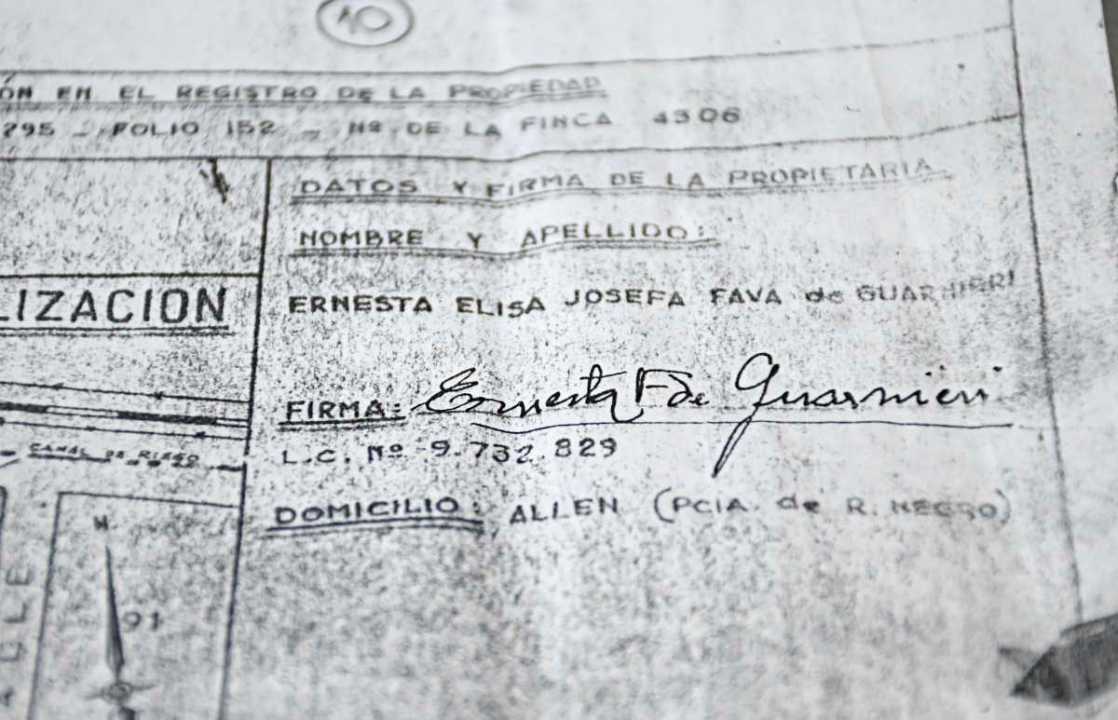 10
ÓN EN EL REGISTRO DE LA PROPIEDAD
295 - FOLIO 152 - Nº DE LA FINCA 4306
DATOS Y FIRMA DE LA PROPIETARIA
NOMBRE Y APELLIDO:
ERNESTA ELISA JOSEFA FAVA de GUARNIERI
LIZACION
FIRMA: Ernesta F de Guarnieri
L.C. Nº 9.732.829
CANAL DE RIEGO
DOMICILIO: ALLEN (PCIA. de R. NEGRO)
N.
91
CLE